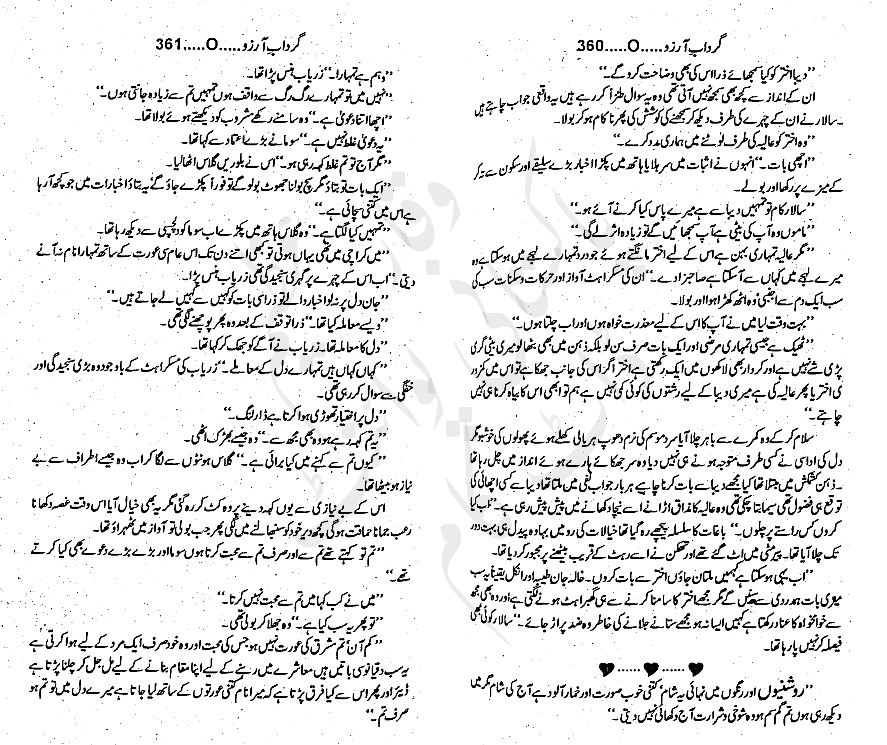 گرداب آرزو.....O.....360
’’دیبا اختر کو کیا سمجھائے ذرا اس کی بھی وضاحت کرو گے۔‘‘
ان کے انداز سے کچھ بھی سمجھ نہیں آتی تھی وہ یہ سوال طنزاً کر رہے ہیں یا واقعی جواب چاہتے ہیں
۔سالار نے ان کے چہرے کی طرف دیکھ کر سمجھنے کی کوشش کی پھر ناکام ہو کر بولا۔
’’وہ اختر کو عالیہ کی طرف لوٹنے میں ہماری مدد کرے۔‘‘
’’اچھی بات۔‘‘ انہوں نے اثبات میں سر ہلایا ہاتھ میں پکڑا اخبار بڑے سلیقے اور سکون سے تہ کر
کے میز پر رکھا اور بولے۔
’’سالار کام تو تمہیں دیبا سے ہے میرے پاس کیا کرنے آئے ہو۔‘‘
’’ماموں وہ آپ کی بیٹی ہے آپ سمجھائیں گے تو زیادہ اثر لے گی۔‘‘
’’مگر عالیہ تمہاری بہن ہے اس کے لیے اختر مانگتے ہوئے جو درد تمہارے لہجے میں ہو سکتا ہے وہ
میرے لہجے میں کہاں سے آ سکتا ہے صاحبزادے۔‘‘ ان کی مسکراہٹ آواز اور حرکات و سکنات سب کی
سب ایک دم سے اجنبی وہ اٹھ کھڑا ہوا اور بولا۔
’’بہت وقت لیا میں نے آپ کا اس کے لیے معذرت خواہ ہوں اور اب چلتا ہوں۔‘‘
’’ٹھیک ہے جیسی تمہاری مرضی اور ایک بات صرف سن لو بلکہ ذہن میں بھی بٹھا لو میری بیٹی گری
پڑی شے نہیں ہے اور کردار بھی لاکھوں میں ایک رکھتی ہے اختر اگر اس کی جانب جھکا ہے تو اس میں کمزور
ی اختر یا پھر عالیہ کی ہے میری دیبا کے لیے رشتوں کی کوئی کمی نہیں ہے ہم تو ابھی اس کا بیاہ کرنا ہی نہیں
چاہتے۔‘‘
سلام کر کے وہ کمرے سے باہر چلا آیا سرد موسم کی نرم دھوپ ہریالی کھلے ہوئے پھولوں کی خوشبو مگر
دل کی اداسی نے کسی طرف متوجہ ہونے ہی نہیں دیا وہ سر جھکائے ہارے ہوئے انداز میں چل رہا تھا
۔ذہن کشمکش میں مبتلا تھا کیا مجھے دیبا سے بات کرنا چاہیے ہر بار جواب نفی میں ملتا تھا دیبا سے کسی اچھائی کی
توقع ہی فضول تھی سیما بتا چکی تھی وہ عالیہ کا مذاق اڑانے اسے نیچا دکھانے میں پیش پیش رہی ہے۔ ’’اب کیا
کروں کس راستے پر چلوں۔‘‘ باغات کا سلسلہ پیچھے رہ گیا تھا خیالات کی رو میں بہا وہ پیدل ہی بہت دور
تک چلا آیا تھا۔ پیر مٹی میں اٹ گئے تھے اور تھکن نے اسے رہٹ کے قریب بیٹھنے پر مجبور کر دیا تھا۔
’’اب یہی ہو سکتا ہے کہیں ملتان جاؤں اختر سے بات کروں۔ خالہ جان طیبہ اور انکل یقیناً یہ سب
میری بات ہمدردی سے سنیں گے مگر مجھے اختر کا سامنا کرنے سے ہی گھبراہٹ ہونے لگتی ہے اور وہ بھی مجھ
سے خوامخواہ کا عناد رکھتا ہے کہیں ایسا نہ ہو مجھے ستانے جلانے کی خاطر وہ ضد پر اڑ جائے۔‘‘ سالار کوئی بھی
فیصلہ کر نہیں پا رہا تھا۔
♥ ...... ♥ ...... ♥
’’روشنیوں اور رنگوں میں نہائی یہ شام‘ کتنی خوب صورت اور خمار آلود ہے آج کی شام مگر میں
دیکھ رہی ہوں تم گم سم ہو وہ شوخی و شرارت آج دکھائی نہیں دیتی۔‘‘
گرداب آرزو.....O.....361
’’وہم ہے تمہارا۔‘‘ زریاب ہنس پڑا تھا۔
’’نہیں میں تو تمہارے رگ رگ سے واقف ہوں تمہیں تم سے زیادہ جانتی ہوں۔‘‘
’’اچھا اتنا دعویٰ ہے۔‘‘ وہ سامنے رکھے مشروب کو دیکھتے ہوئے بولا تھا۔
’’یہ دعویٰ غلط نہیں ہے۔‘‘ سوما نے بڑے اعتماد سے کہا تھا۔
’’مگر آج تو تم غلط کہہ رہی ہو۔‘‘ اس نے بلوریں گلاس اٹھا لیا۔
’’ایک بات تو بتاؤ مگر سچ بولنا جھوٹ بولو گے تو فوراً پکڑے جاؤ گے یہ بتاؤ اخبارات میں جو کچھ آ رہا
ہے اس میں کتنی سچائی ہے۔‘‘
’’تمہیں کیا لگتا ہے۔‘‘ وہ گلاس ہاتھ میں پکڑے اب سوما کو دلچسپی سے دیکھ رہا تھا۔
’’میں کراچی میں تھی یہاں ہوتی تو بھی اتنے دن تک اس عام سی عورت کے ساتھ تمہارا نام نہ آنے
دیتی۔‘‘ اب اس کے چہرے پر گہری سنجیدگی تھی زریاب ہنس پڑا۔
’’جان دل یہ نہ لو اخبار والے تو ذرا سی بات کو کہیں سے کہیں لے جاتے ہیں۔‘‘
’’ویسے معاملہ کیا تھا۔‘‘ ذرا توقف کے بعد وہ پھر پوچھنے لگی تھی۔
’’دل کا معاملہ تھا۔ زریاب نے آگے کو جھک کر کہا تھا۔
’’کہاں کہاں ہیں تمہارے دل کے معاملے۔‘‘ زریاب کی مسکراہٹ کے باوجود وہ بڑی سنجیدگی اور
خفگی سے سوال کر رہی تھی۔
’’دل پر اختیار تھوڑی ہوا کرتا ہے ڈارلنگ۔‘‘
’’یہ تم کہہ رہے ہو وہ بھی مجھ سے۔‘‘ وہ جیسے بھڑک اٹھی۔
’’کیوں تم سے کہنے میں کیا برائی ہے۔‘‘ گلاس ہونٹوں سے لگا کر اب وہ جیسے اطراف سے بے
نیاز ہو بیٹھا تھا۔
اس کے بے نیازی سے یوں کہہ دینے پر وہ کٹ کر رہ گئی مگر یہ بھی خیال آیا اس وقت غصہ دکھانا
رعب جمانا حماقت ہو گی کچھ دیر خود کو سنبھالنے میں لگی پھر جب بولی تو آواز میں ٹھہراؤ تھا۔
’’تم تو کہتے تھے تم سے اور صرف تم سے محبت کرتا ہوں سوما اور بڑے بڑے دعوے بھی کیا کرتے
تھے۔‘‘
’’میں نے کب کہا میں تم سے محبت نہیں کرتا۔‘‘
’’تو پھر یہ سب کیا ہے۔‘‘ وہ جھلا کر بولی تھی۔
’’کم آن تم مشرق کی عورت نہیں ہو جس کی محبت اور وہ خود صرف ایک مرد کے لیے ہوا کرتی ہے
یہ سب دقیانوسی باتیں ہیں معاشرے میں رہنے کے لیے اپنا مقام بنانے کے لیے مل جل کر چلنا پڑتا ہے
ڈیئر اور پھر اس سے کیا فرق پڑتا ہے کہ میرا نام کتنی عورتوں کے ساتھ لیا جاتا ہے میرے دل میں تو تم ہو
صرف تم۔‘‘